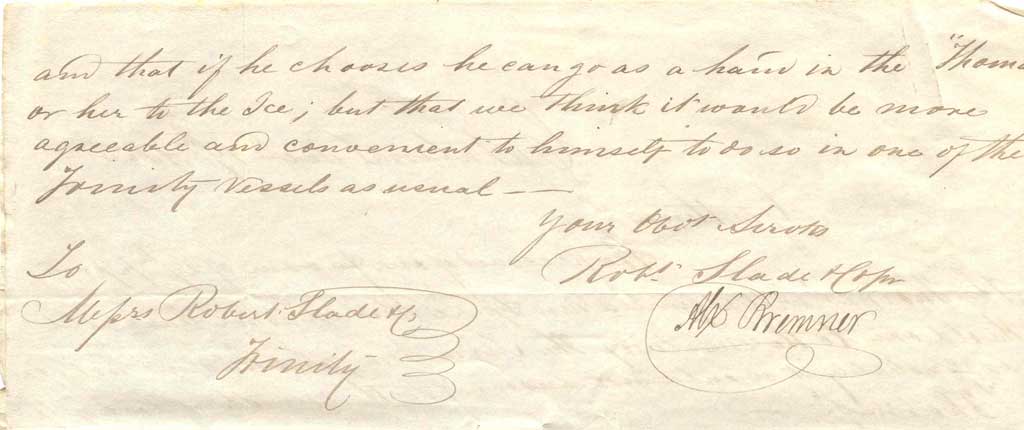 and that if he chooses he can go as a hand in the "Thoma
or her to the Ice; but that we think it would be more
agreeable and convenient to himself to do so in one of the
Trinity Vessels as usual —
Your Obdt Servts
Robt Slade & Co
Alx Bremner
To
Messrs Robert Slade & Co
Trinity